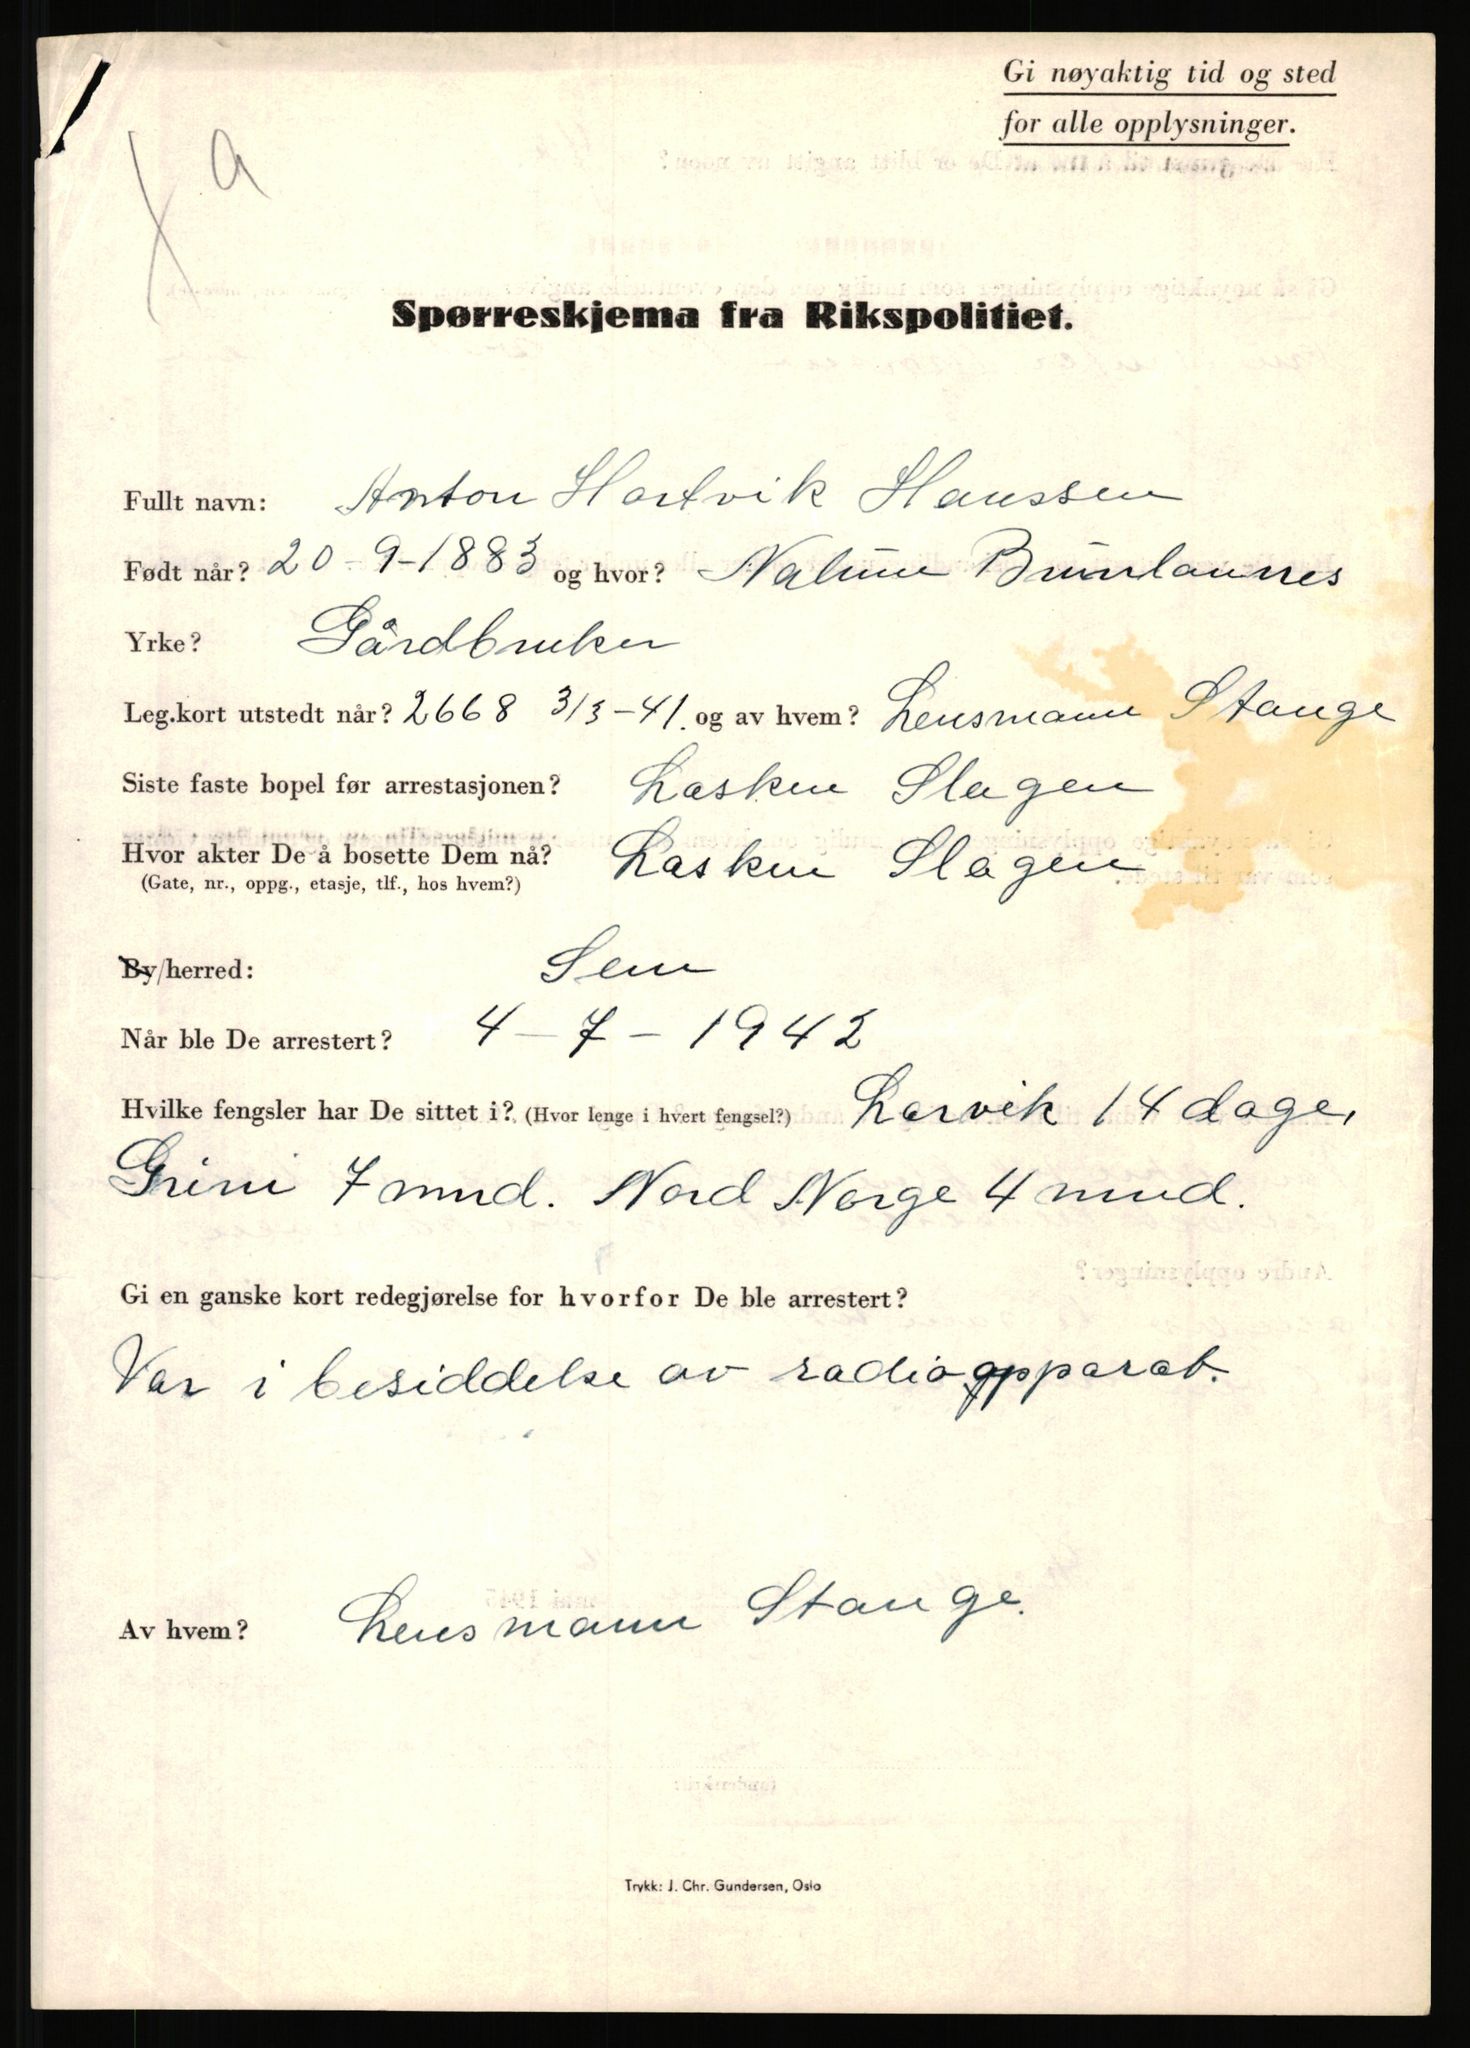 Gi nøyaktig tid og sted
for alle opplysninger.
a
Spørreskjema fra Rikspolitiet.
Fullt navn: Anton Hartvik Hanssen
Født når? 20-9-1883 og hvor? Nalum Brunlannes
Yrke? Gårdbruker
Leg.kort utstedt når? 2668 3/3-41. og av hvem? Lensmann Stange
Siste faste bopel før arrestasjonen? Lasken Slagen
Hvor akter De å bosette Dem nå? Lasken Slagen
(Gate, nr., oppg., etasje, tlf., hos hvem?)
By/herred: Sem
Når ble De arrestert? 4-7-1942
Hvilke fengsler har De sittet i? (Hvor lenge i hvert fengsel?) Larvik 14 dage,
Grini 7 mnd. Nord Norge 4 mnd.
Gi en ganske kort redegjørelse for hvorfor De ble arrestert?
Var i besiddelse av radioapparat.
Av hvem? Lensmann Stange.
Trykk: J. Chr. Gundersen, Oslo